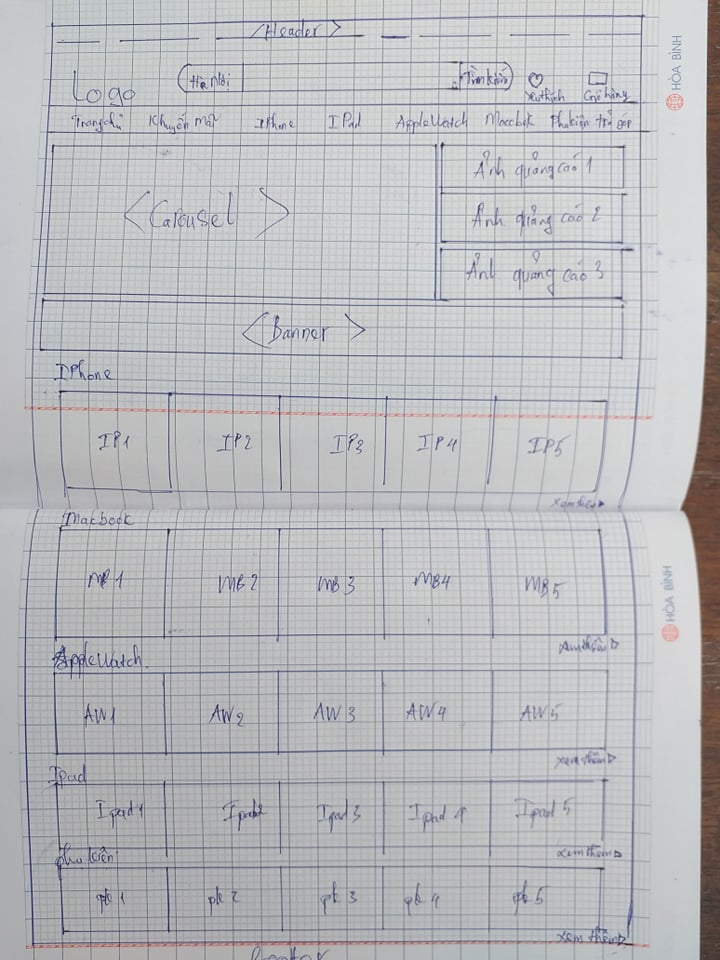 <Header>
Hà Nội Tìm kiếm
Logo Yêu thích Giỏ hàng
Trang chủ Khuyến mãi IPhone IPad AppleWatch Macbook Phụ kiện trả góp
<Carousel>
Ảnh quảng cáo 1
Ảnh quảng cáo 2
Ảnh quảng cáo 3
<Banner>
IPhone
IP1 IP2 IP3 IP4 IP5
xem thêm
Macbook
MB1 MB2 MB3 MB4 MB5
xem thêm
AppleWatch
AW1 AW2 AW3 AW4 AW5
xem thêm
Ipad
Ipad1 Ipad2 Ipad3 Ipad 4 Ipad 5
xem thêm
phụ kiện
pk 1 pk 2 pk 3 pk 4 pk 5
xem thêm
HÒA BÌNH
HÒA BÌNH